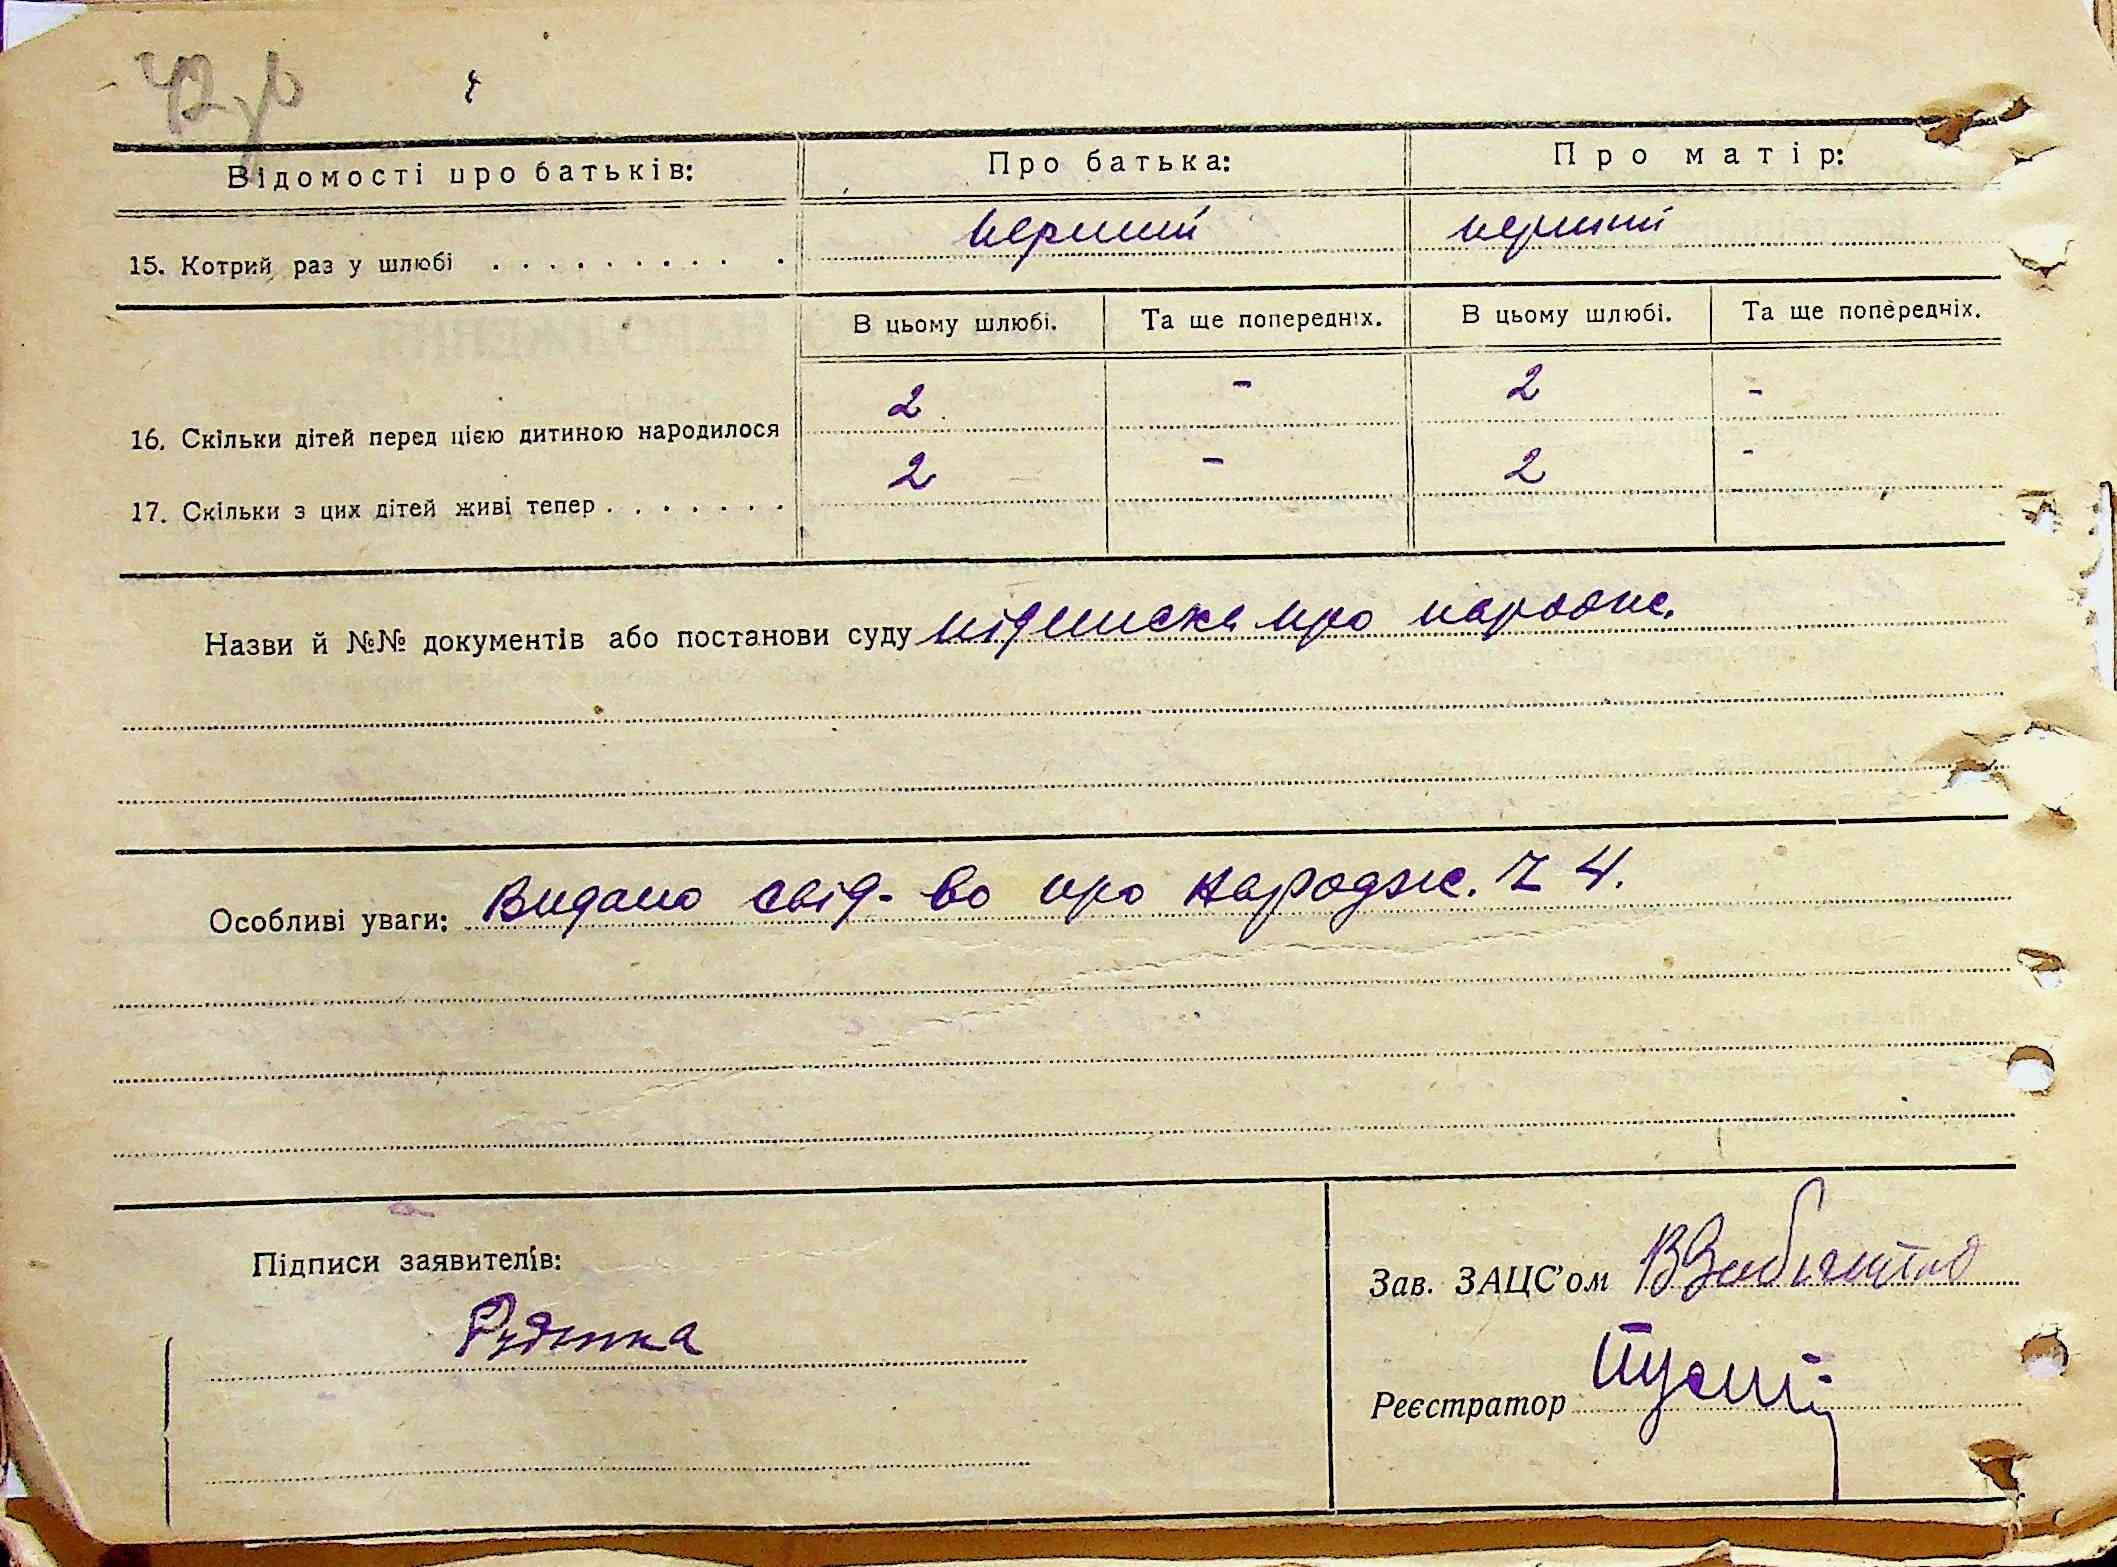 Відомості про батьків: Про батька: Про матір:
15. Котрий раз у шлюбі . . . . . . . . . . . перший перший
В цьому шлюбі. Та ще попередніх. В цьому шлюбі. Та ще попередніх.
16. Скільки дітей перед цією дитиною народилося 2 - 2 -
17. Скільки з цих дітей живі тепер . . . . . . . 2 - 2 -
Назви й №№ документів або постанови суду підписка про народж.
Особливі уваги: Видано свід-во про народж. Ч 4.
Підписи заявителів:
Зав. ЗАЦС'ом
Реєстратор